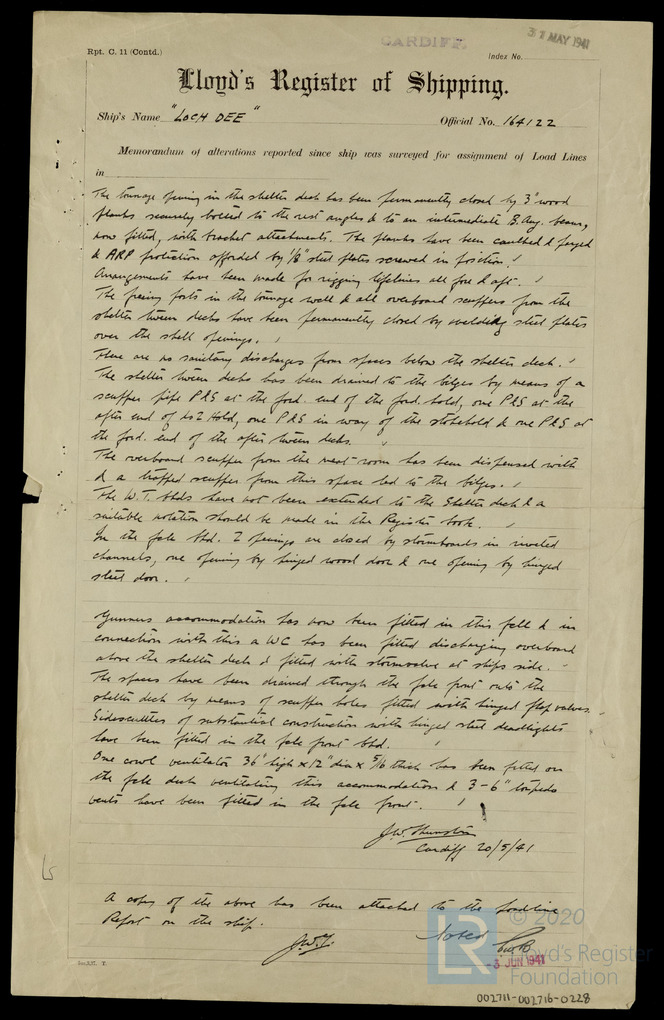 Rpt. C. 11 (Contd.)
CARDIFF.
31 MAY 1941
Index No.
Lloyd's Register of Shipping.
Ship's Name "LOCH DEE"
Official No. 164122
Memorandum of alterations reported since ship was surveyed for assignment of Load Lines
in
The tonnage opening in the shelter deck has been permanently closed by 3" wood
planks securely bolted to the rest angles & to an intermediate B. Ang. beam,
now fitted, with bracket attachments. The planks have been caulked & payed
& ARP protection afforded by 1/8" steel plates screwed in position.
Arrangements have been made for rigging lifelines all fore & aft.
The freeing ports in the tonnage well & all overboard scuppers from the
shelter tween decks have been permanently closed by welding steel plates
over the shell openings.
There are no sanitary discharges from spaces below the shelter deck.
The shelter tween decks has been drained to the bilges by means of a
scupper pipe P&S at the ford. end of the ford. hold, one P&S at the
after end of No 2 Hold, one P&S in way of the stokehold & one P&S at
the ford. end of the after tween decks.
The overboard scupper from the meat room has been dispensed with
& a trapped scupper from this space led to the bilges.
The W.T. Bhds have not been extended to the shelter deck & a
suitable notation should be made in the Register book.
In the fcle bhd. 2 openings are closed by stormboards in inverted
channels, one opening by hinged wood door & one opening by hinged
steel door.
Gunners accommodation has now been fitted in this fcle & in
connection with this a WC has been fitted discharging overboard
above the shelter deck & fitted with stormvalve at ships side.
The spaces have been drained through the fcle front onto the
shelter deck by means of scupper holes fitted with hinged flap valves.
Sidescuttles of substantial construction with hinged steel deadlights
have been fitted in the fcle front bhd.
One cowl ventilator 36" high x 12" dia x 5/16 thick has been fitted on
the fcle deck ventilating this accommodation & 3-6" torpedo
vents have been fitted in the fcle front.
J.W.
Cardiff 20/5/41
A copy of the above has been attached to the loadline
Report on the ship.
J.W.T.
Noted
-3 JUN 1941
LR
© 2020
Lloyd's Register
Foundation
002711-002716-0228